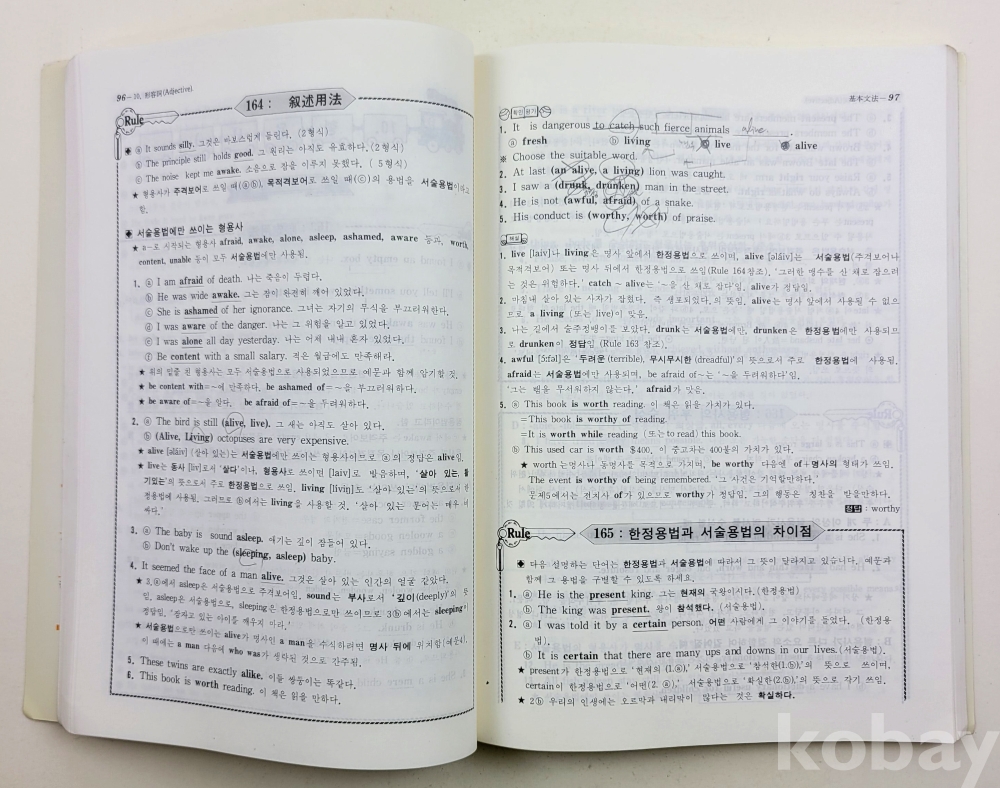 96 — 10. 形容詞(Adjective).
Rule 164 : 叙述用法
ⓐ It sounds silly. 그것은 바보스럽게 들린다. (2형식)
ⓑ The principle still holds good. 그 원리는 아직도 유효하다.(2형식)
ⓒ The noise kept me awake. 소음으로 잠을 이루지 못했다. ( 5형식)
★ 형용사가 주격보어로 쓰일 때(ⓐⓑ), 목적격보어로 쓰일 때(ⓒ)의 용법을 서술용법이라고
함.
서술용법에만 쓰이는 형용사
★ a-로 시작되는 형용사 afraid, awake, alone, asleep, ashamed, aware 등과, worth,
content, unable 등이 모두 서술용법에만 사용됨.
1. ⓐ I am afraid of death. 나는 죽음이 두렵다.
ⓑ He was wide awake. 그는 잠이 완전히 깨어 있었다.
ⓒ She is ashamed of her ignorance. 그녀는 자기의 무식을 부끄러워한다.
ⓓ I was aware of the danger. 나는 그 위험을 알고 있었다.
ⓔ I was alone all day yesterday. 나는 어제 내내 혼자 있었다.
ⓕ Be content with a small salary. 적은 월급에도 만족해라.
★ 위의 밑줄 친 형용사는 모두 서술용법으로 사용되었으므로 예문과 함께 암기할 것.
★ be content with=~에 만족하다. be ashamed of=~을 부끄러워하다.
★ be aware of=~을 알다. be afraid of=~을 두려워하다.
2. ⓐ The bird is still (alive, live). 그 새는 아직도 살아 있다.
ⓑ (Alive, Living) octopuses are very expensive.
★ alive [əláiv] (살아 있는)는 서술용법에만 쓰이는 형용사이므로 ⓐ의 정답은 alive임.
★ live는 동사 [liv]로서 '살다'이나, 형용사로 쓰이면 [laiv]로 발음하며, '살아 있는, 활
기있는'의 뜻으로서 주로 한정용법으로 쓰임. living [liviŋ]도 '살아 있는'의 뜻으로서 한
정용법에 사용됨. 그러므로 ⓑ에서는 living을 사용할 것. '살아 있는 문어는 매우 비
싸다.'
3. ⓐ The baby is sound asleep. 애기는 깊이 잠들어 있다.
ⓑ Don't wake up the (sleeping, asleep) baby.
4. It seemed the face of a man alive. 그것은 살아 있는 인간의 얼굴 같았다.
★ 3.ⓐ에서 asleep은 서술용법으로 주격보어임, sound는 부사로서 '깊이(deeply)'의 뜻
임, asleep은 서술용법으로, sleeping은 한정용법으로만 쓰이므로 3ⓑ에서는 sleeping이
정답임, '잠자고 있는 아이를 깨우지 마라.'
★ 서술용법으로만 쓰이는 alive가 명사인 a man을 수식하려면 명사 뒤에 위치함(예문4).
이 때에는 a man 다음에 who was가 생략된 것으로 간주됨.
5. These twins are exactly alike. 이들 쌍둥이는 똑같다.
6. This book is worth reading. 이 책은 읽을 만하다.
基本文法 — 97
확인평가
1. It is dangerous to catch such fierce animals alive.
ⓐ fresh ⓑ living ⓒ live ⓓ alive
※ Choose the suitable word.
2. At last (an alive, a living) lion was caught.
3. I saw a (drunk, drunken) man in the street.
4. He is not (awful, afraid) of a snake.
5. His conduct is (worthy, worth) of praise.
해설
1. live [laiv]나 living은 명사 앞에서 한정용법으로 쓰이며, alive [əláiv]는 서술용법(주격보어나
목적격보어) 또는 명사 뒤에서 한정용법으로 쓰임(Rule 164참조). '그러한 맹수를 산 채로 잡으려
는 것은 위험하다.' catch ~ alive는 '~을 산 채로 잡다'임. alive가 정답임.
2. 마침내 살아 있는 사자가 잡혔다. 즉 생포되었다.의 뜻임. alive는 명사 앞에서 사용될 수 없으
므로 a living (또는 live)이 맞음.
3. 나는 길에서 술주정뱅이를 보았다. drunk는 서술용법에만, drunken은 한정용법에만 사용되므
로 drunken이 정답임 (Rule 163 참조).
4. awful [ɔ́:fəl]은 '두려운(terrible), 무시무시한 (dreadful)'의 뜻으로서 주로 한정용법에 사용됨.
afraid는 서술용법에만 사용되며, be afraid of~는 '~을 두려워하다'임.
'그는 뱀을 무서워하지 않는다.' afraid가 맞음.
5. ⓐ This book is worth reading. 이 책을 읽을 가치가 있다.
=This book is worthy of reading.
=It is worth while reading (또는 to read) this book.
ⓑ This used car is worth 홍400. 이 중고차는 400불의 가치가 있다.
★ worth 는명사나 동명사를 목적으로 가지며, be worthy 다음엔 of+명사의 형태가 쓰임.
The event is worthy of being remembered. '그 사건은 기억할만하다.'
문제5에서는 전치사 of가 있으므로 worthy가 정답임. 그의 행동은 칭찬을 받을만하다.
정답 : worthy
Rule 165 : 한정용법과 서술용법의 차이점
다음 설명하는 단어는 한정용법과 서술용법에 따라서 그 뜻이 달라지고 있습니다. 예문과
함께 그 용법을 구별할 수 있도록 하세요.
1. ⓐ He is the present king. 그는 현재의 국왕이시다.(한정용법)
ⓑ The king was present. 왕이 참석했다. (서술용법).
2. ⓐ I was told it by a certain person. 어떤 사람에게 그 이야기를 들었다. (한정용
법).
ⓑ It is certain that there are many ups and downs in our lives.(서술용법).
★ present가 한정용법으로 '현재의 (1.ⓐ),' 서술용법으로 '참석한(1.ⓑ),'의 뜻으로 쓰이며,
certain이 한정용법으로 '어떤(2. ⓐ),' 서술용법으로 '확실한(2.ⓑ),'의 뜻으로 각기 쓰임.
★ 2ⓑ 우리의 인생에는 오르막과 내리막이 많다는 것은 확실하다.
kobay